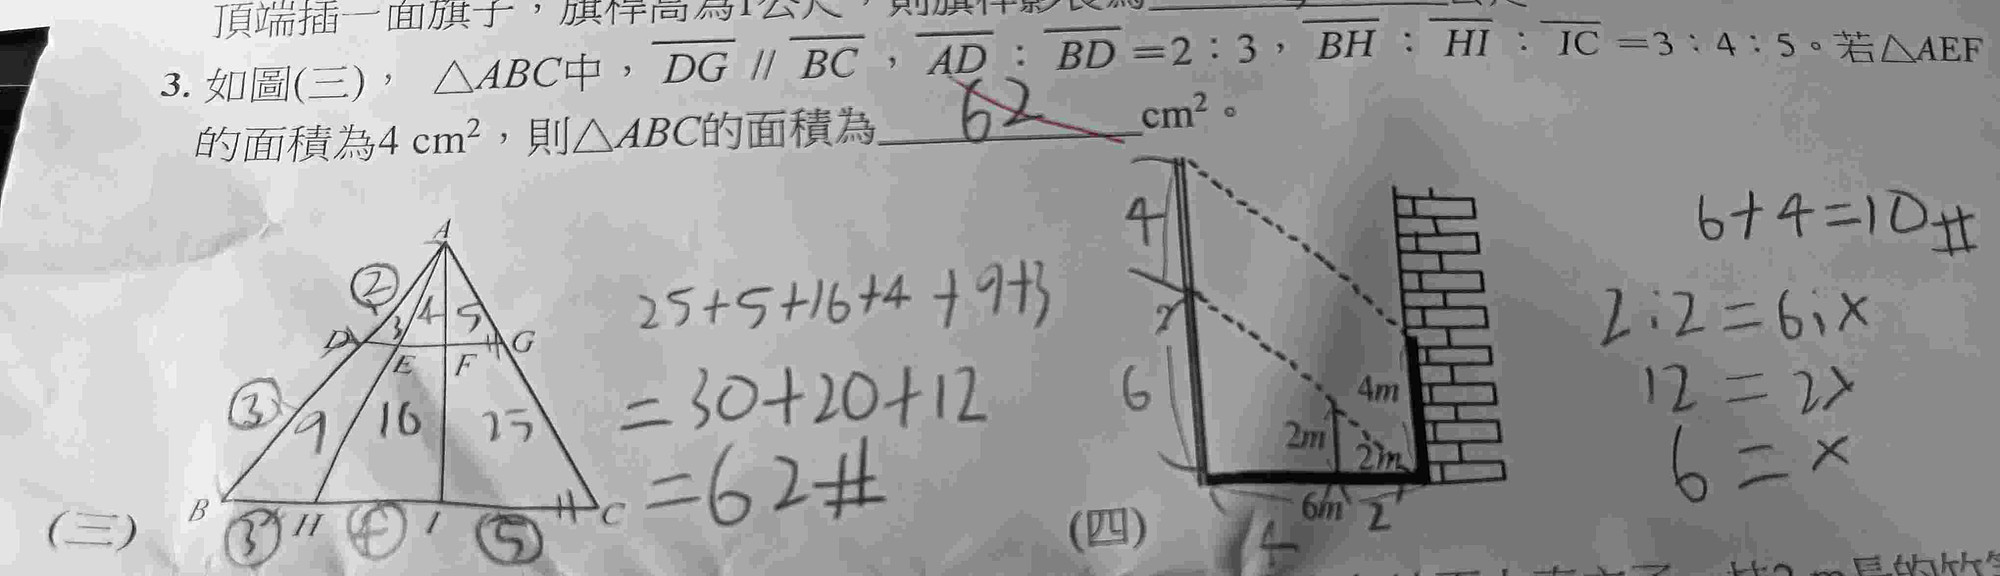 頂端插一面旗子，旗桿高為1公尺，則旗桿影長為
3. 如圖(三)， △ABC中，DG // BC ，AD：BD=2：3，BH：HI：IC=3：4：5。若△AEF
的面積為4 cm²，則△ABC的面積為 62 cm²。
A
② 4 5
3
D E F G
③ 9 16 25
B H I C
③ 4 ⑤
(三)
25+5+16+4+9+3
=30+20+12
=62#
4
6
4m
2m 2m
6m 2
(四)
6+4=10#
2:2=6:x
12=2x
6=x